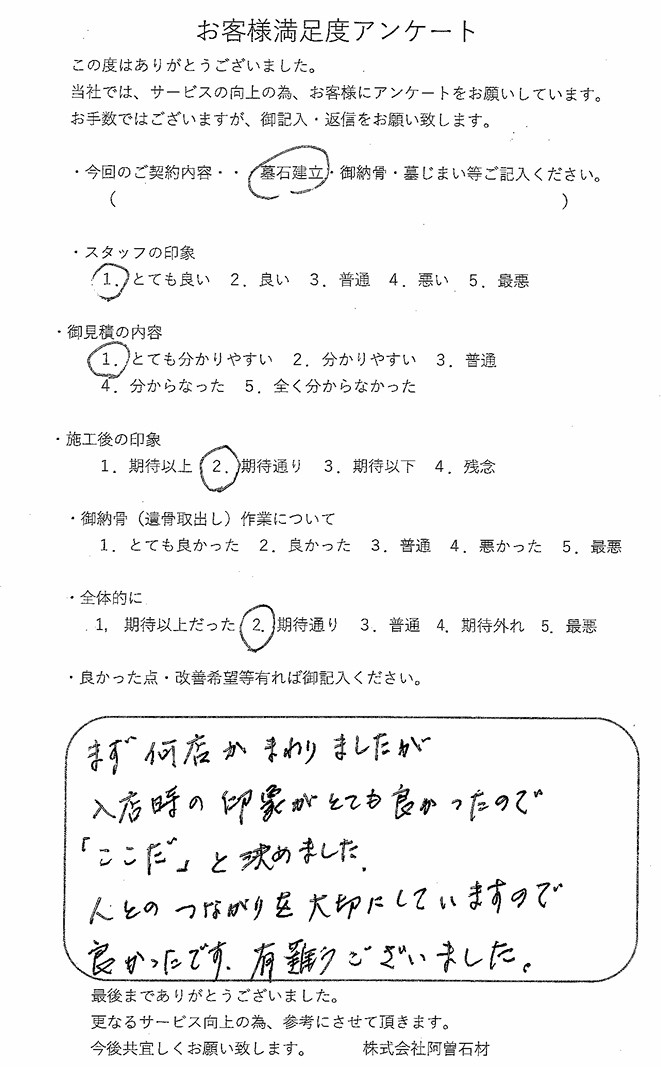 お客様満足度アンケート
この度はありがとうございました。
当社では、サービスの向上の為、お客様にアンケートをお願いしています。
お手数ではございますが、御記入・返信をお願い致します。
・今回のご契約内容・・ 墓石建立・御納骨・墓じまい等ご記入ください。
( )
・スタッフの印象
1. とても良い 2. 良い 3. 普通 4. 悪い 5. 最悪
・御見積の内容
1. とても分かりやすい 2. 分かりやすい 3. 普通
4. 分からなった 5. 全く分からなかった
・施工後の印象
1. 期待以上 2. 期待通り 3. 期待以下 4. 残念
・御納骨（遺骨取出し）作業について
1. とても良かった 2. 良かった 3. 普通 4. 悪かった 5. 最悪
・全体的に
1, 期待以上だった 2. 期待通り 3. 普通 4. 期待外れ 5. 最悪
・良かった点・改善希望等有れば御記入ください。
まず何店かまわりましたが
入店時の印象がとても良かったので
「ここだ」と決めました.
人とのつながりを大切にしていますので
良かったです. 有難うございました。
最後までありがとうございました。
更なるサービス向上の為、参考にさせて頂きます。
今後共宜しくお願い致します。 株式会社阿曽石材